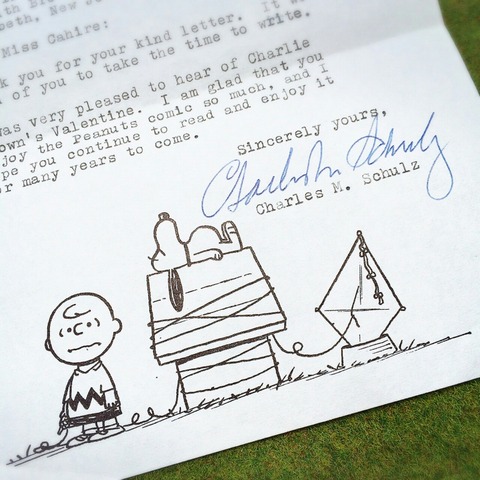 th
beth, New
Miss Cahire:
k you for your kind letter. It w
of you to take the time to write.
was very pleased to hear of Charlie
own's Valentine. I am glad that you
joy the Peanuts comic so much, and I
pe you continue to read and enjoy it
or many years to come.
Sincerely yours,
Charles M. Schulz
Charles M. Schulz